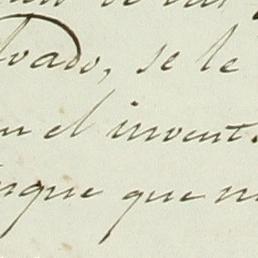 lvado, se le
en el invent
nque que n